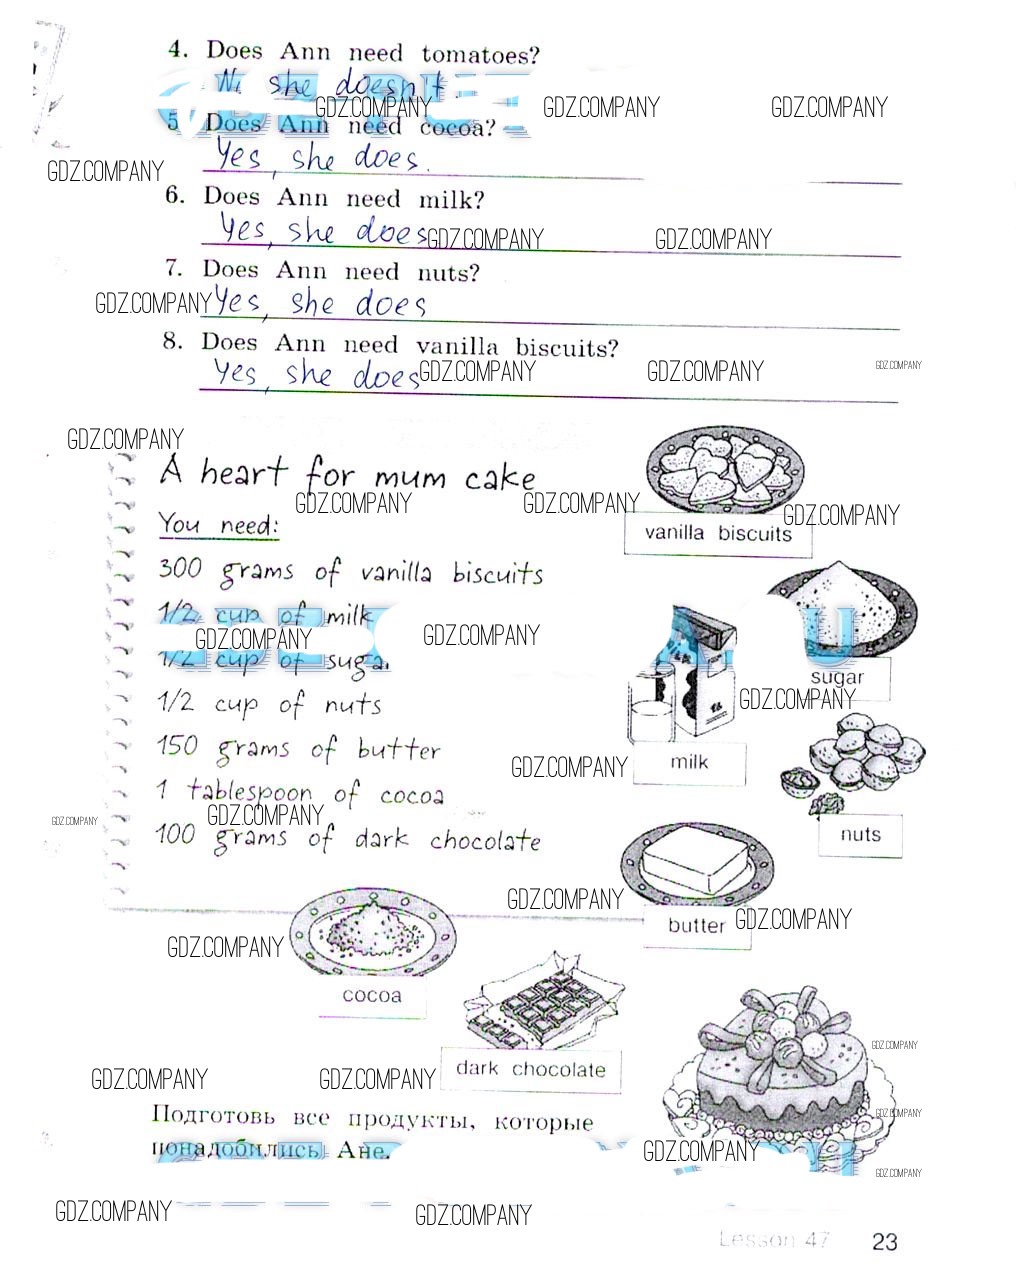 4. Does Ann need tomatoes?
No she doesn't.
GDZ.COMPANY GDZ.COMPANY GDZ.COMPANY
5 Does Ann need cocoa?
Yes, she does.
GDZ.COMPANY
6. Does Ann need milk?
Yes, she does
GDZ.COMPANY GDZ.COMPANY
7. Does Ann need nuts?
GDZ.COMPANY
Yes, she does
8. Does Ann need vanilla biscuits?
Yes, she does
GDZ.COMPANY GDZ.COMPANY GDZ.COMPANY
GDZ.COMPANY
A heart for mum cake
GDZ.COMPANY GDZ.COMPANY GDZ.COMPANY
You need:
vanilla biscuits
300 grams of vanilla biscuits
1/2 cup of milk
GDZ.COMPANY GDZ.COMPANY
1/2 cup of sugar
sugar
1/2 cup of nuts
GDZ.COMPANY
150 grams of butter
milk
GDZ.COMPANY
1 tablespoon of cocoa
GDZ.COMPANY GDZ.COMPANY
100 grams of dark chocolate
nuts
GDZ.COMPANY
butter
GDZ.COMPANY
GDZ.COMPANY
cocoa
GDZ.COMPANY
dark chocolate
GDZ.COMPANY GDZ.COMPANY
Подготовь все продукты, которые
GDZ.COMPANY
понадобились Ане.
GDZ.COMPANY
GDZ.COMPANY
GDZ.COMPANY GDZ.COMPANY
Lesson 47 23